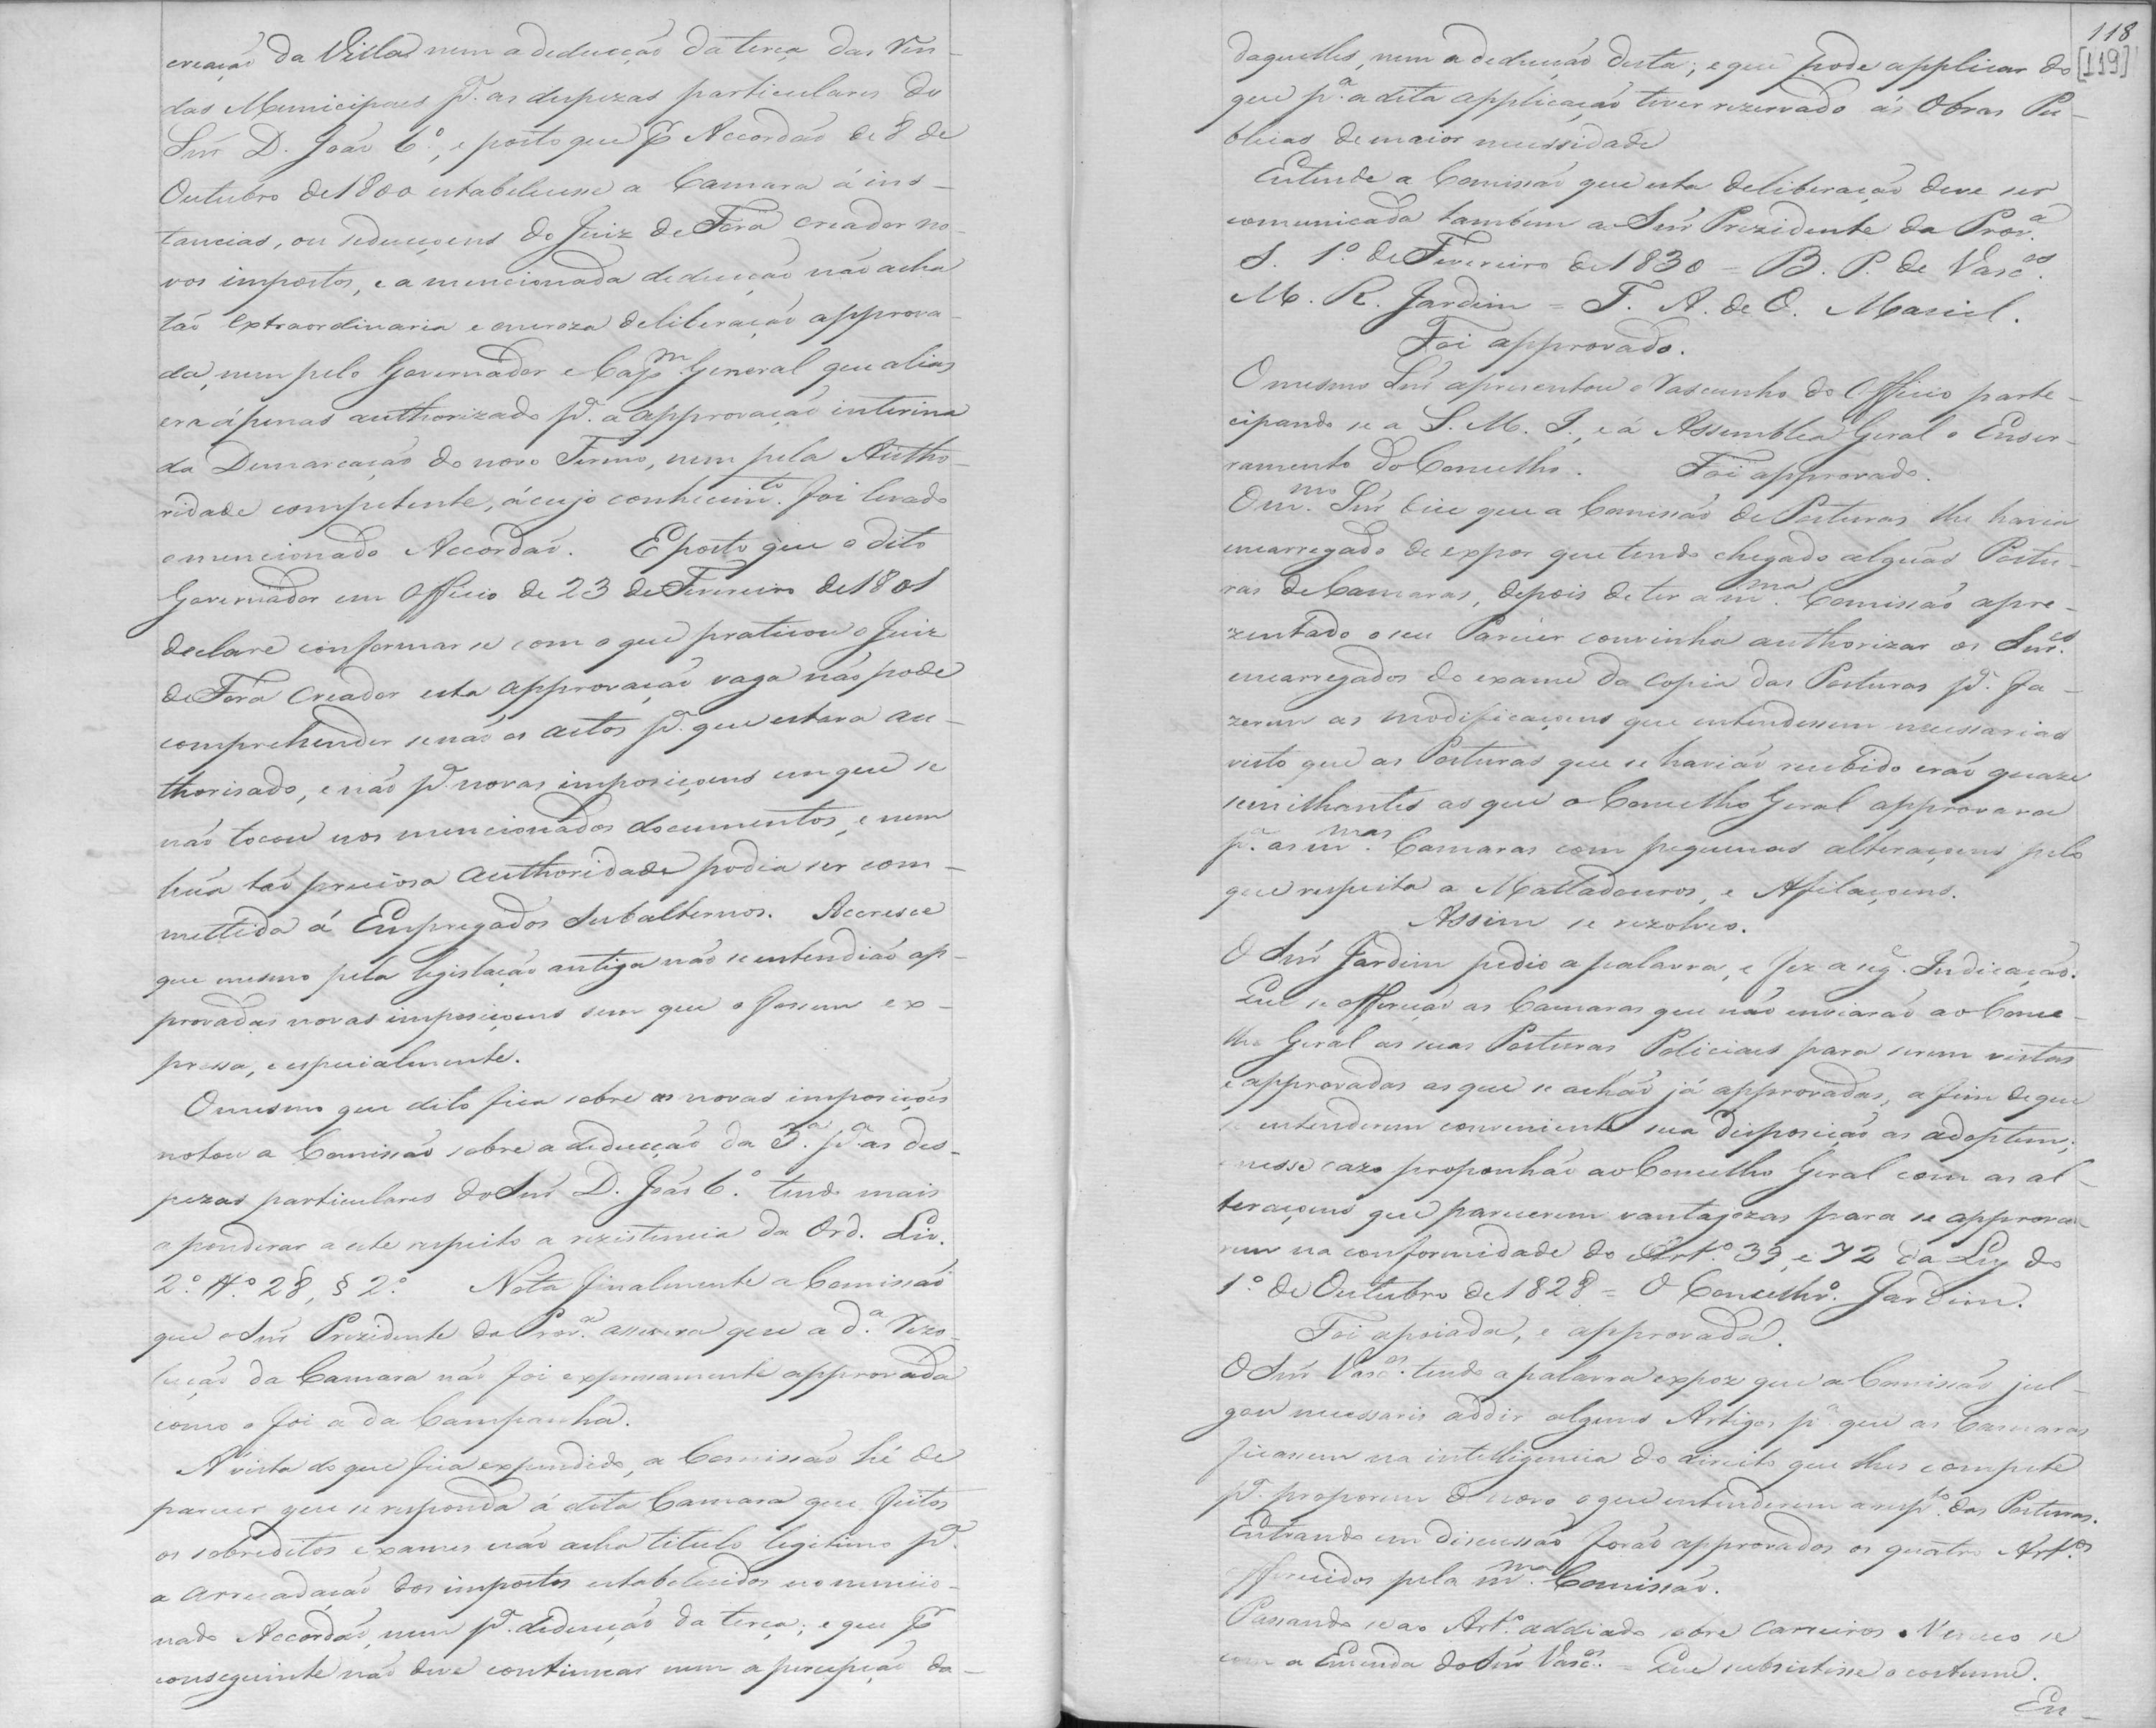 creação da Villa nem a deducção da terça das Ren-
das Municipaes pª. as despezas particulares do
Snr D. João 6º, e posto que pr Accordão de 8 de
Outubro de 1800 estabelecesse a Camara á ins-
tancias, ou seducçoens do Juiz de Fora creador no-
vos impostos, e a mencionada deducção não acha
tão extraordinaria e oneroza deliberação approva-
da, nem pelo Governador e Capm. General que alias
era ápenas authorizado pª. a approvação interina
da Demarcação do novo Termo, nem pela Autho-
ridade competente, ácujo conhecimto. foi levado
o mencionado Accordão. E posto que o dito
Governador em Officio de 23 de Fevereiro de 1801
declare conformar se com o que praticou o Juiz
de Fora Creador esta approvação vaga não pode
comprehender senão os actos pª. que estava au-
thorisado, e não pª. novas imposiçoens em que se
não tocou nos mencionados documentos, e nem
huã tão preciosa authoridade podia ser com-
mettida á Empregados Subalternos. Accresce
que mesmo pela legislação antiga não se entendião ap-
provadas novas imposiçoens sem que o fossem ex-
pressa, e especialmente.
O mesmo que dito fica sobre as novas imposições
notou a Comissão sobre a deducção da 3ª. pª. as des-
pezas particulares do Snr D. João 6.º tendo mais
a ponderar a este respeito a rezistencia da Ord. Liv.
2.º tº. 28, § 2.º Nota finalmente a Comissão
que o Snr Prezidente da Provª. assevera que a dª. Rezo-
lução da Camara não foi expressamente approvada
como o foi a da Campanha.
Á vista do que fica expendido, a Comissão hé de
parecer que se responda á dita Camara que feitos
os sobreditos exames não acha titulo legitimo pª.
a arrecadação dos impostos estabelecidos no mencio-
nado Accordão, nem pª. deducção da terça; e que pr
conseguinte não deve continuar nem a percepção da-
118
[119]
daquelles, nem a deducção desta; e que pode applicar do
que pª. a dita applicação tiver rezervado ás Obras Pu-
blicas de maior necessidade
Entende a Comissão que esta deliberação deve ser
comunicada tambem ao Snr Prezidente da Provª.
S. 1º. de Fevereiro de 1830 = B. P. de Vascos.
M. R. Jardim = F. A. de O. Maciel.
Foi approvado.
O mesmo Snr apresentou o Rascunho do Officio parte-
cipando se a S. M. I., e á Assemblea Geral o Encer-
ramento do Concelho. Foi approvado.
O mmo. Snr dice que a Comissão de Posturas lhe havia
encarregado de expor que tendo chegado alguãs Postu-
ras de Camaras, depois de ter a mma. Comissão apre-
zentado o seu Parecer convinha authorizar os Snres.
encarregados do exame da copia das Posturas pª. fa-
zerem as modificaçoens que entendessem necessarias
visto que as Posturas que se havião recebido erão quaze
semilhantes as que o Concelho Geral approvara
pª. as mmas. Camaras com pequenas alteraçoens pelo
que respeita a Mattadouros, e Afilaçoens.
Assim se rezolveo.
O Snr Jardim pedio a palavra, e fez a sege. Indicação.
Que se offereção as Camaras que não enviarão ao Conce-
lho Geral as suas Posturas Policiaes para serem vistas
e approvadas as que se achão já approvadas, a fim de que
se entenderem conveniente sua disposição as adoptem;
e nesse cazo proponhão ao Concelho Geral com as al-
teraçoens que parecerem vantajozas para se approva-
rem na conformidade do Artº. 39, e 72 da Ley do
1º. de Outubro de 1828 = O Conselhrº. Jardim.
Foi apoiada, e approvada.
O Snr Vascos. tendo a palavra expoz que a Comissão jul-
gou necessario addir alguns Artigos pª. que as Camaras
ficassem na intelligencia do direito que lhes compete
pª. proporem de novo o que entenderem a respto. das Posturas.
Entrando em discussão forão approvados os quatro Artos.
offerecidos pela mma. Comissão.
Passando se ao Artº. addiado sobre Carreiros. Venceo se
com a Emenda do Snr Vascos. = Que subsistisse o costume.
En-